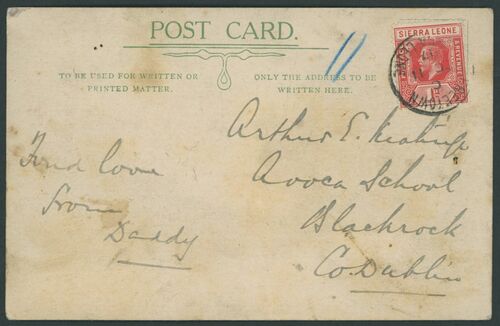 POST CARD.
TO BE USED FOR WRITTEN OR
PRINTED MATTER.
ONLY THE ADDRESS TO BE
WRITTEN HERE.
SIERRA LEONE
11
Fond love
from
Daddy
Arthur E. Keatinge
Avoca School
Blackrock
Co. Dublin